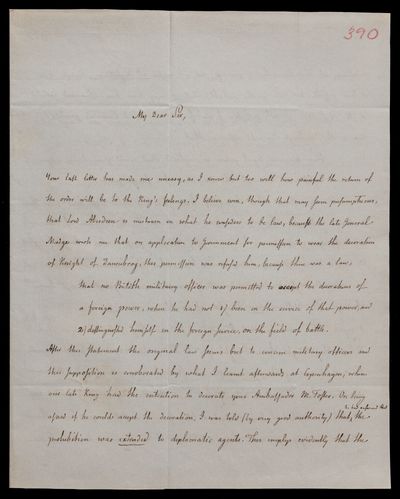 390
My Dear Sir,
Your last letter has made me uneasy, as I know but too well how painful the return of
the order will be to the King's feelings. I believe even, though that may seem presumptuous,
that Lord Aberdeen is mistaken in what he considers to be law, because the late General
Mudge wrote me that on application to Government for permission to wear the decoration
of Knight of Danebrog, this permission was refused him, because there was a law:
that no British military officer was permitted to accept the decoration of
a foreign power, when he had not 1) been in the service of that power, and
2) distinguished himself in the foreign service, on the field of battle.
After this statement the original Law seems but to concern military officers and
this supposition is corroborated by what I learnt afterwards at Copenhagen, when
our late King had the intention to decorate your Ambassador Mr. Foster. On being
asked if he could accept the decoration, I was told (by very good authority) that the
prohibition was extended to diplomatic agents. This implys evidently that the